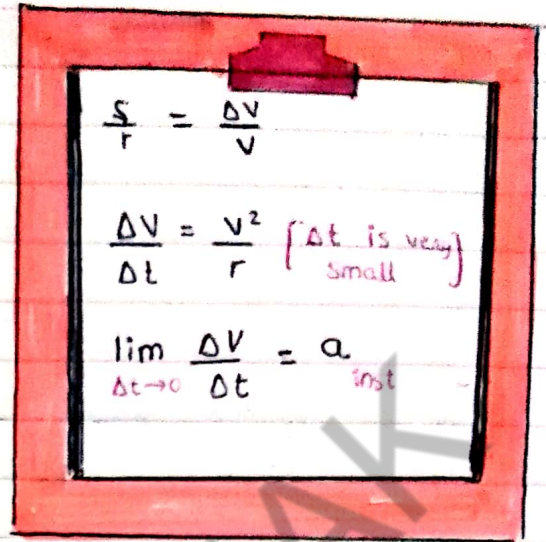 s/r = ΔV/V
ΔV/Δt = V²/r [Δt is very small]
lim Δt→0 ΔV/Δt = a inst
AK